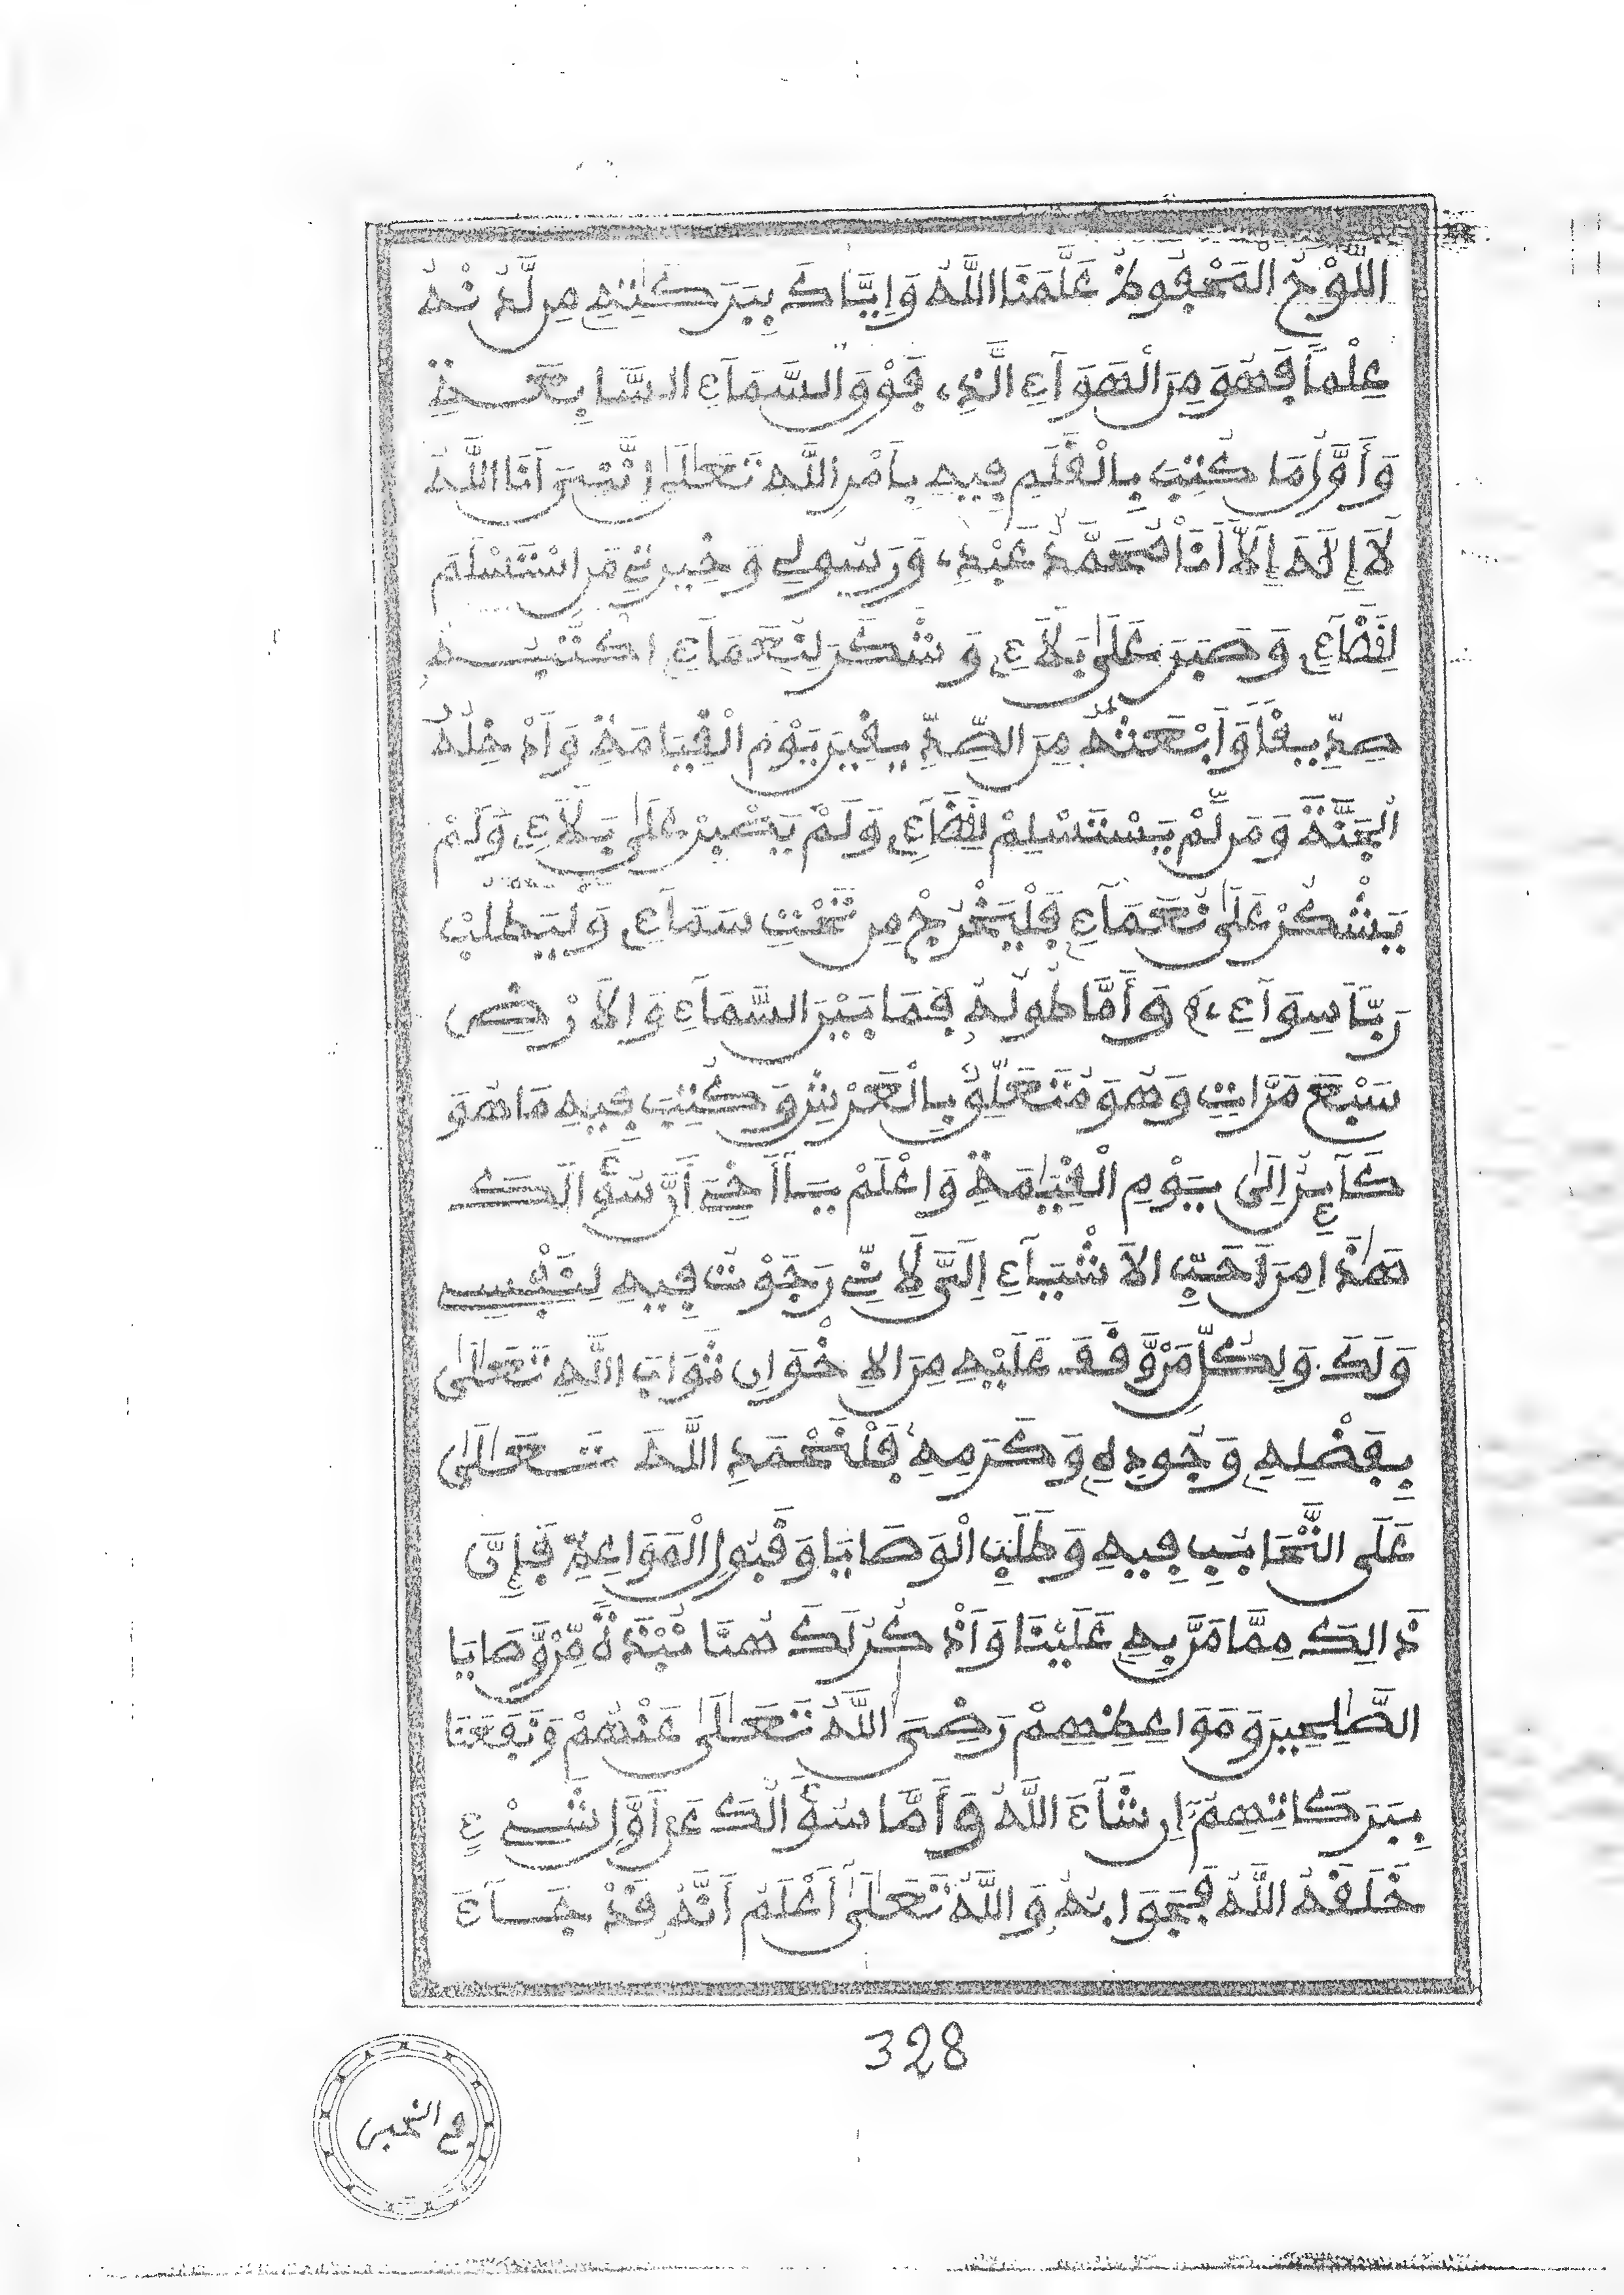 اللَّوْحُ الْمَحْفُوظُ عَلَّمَنَا اللَّهُ وَإِيَّاكَ بِبَرَكَتِهِ مِن لَّدُنْهُ
عِلْماً فَهُوَ مِنَ الْهَوَآءِ الَّذِي فَوْقَ السَّمَآءِ السَّابِعَةِ
وَأَوَّلُ مَا كُتِبَ بِالْقَلَمِ فِيهِ بِأَمْرِ اللَّهِ تَعَلَىٰ إِنَّنِى أَنَا اللَّهُ
لَآ إِلَهَ إِلَّآ أَنَا مُحَمَّدٌ عَبْدِي وَرَسُولِي وَخِيرَتِي مَنِ اسْتَسْلَمَ
لِقَضَآءِي وَصَبَرَ عَلَىٰ بَلَآءِي وَشَكَرَ لِنَعْمَآءِي اكْتُبْهُ
صِدِّيقاً وَابْعَثْهُ مِنَ الصِّدِّيقِينَ يَوْمَ الْقِيَامَةِ وَأَدْخِلْهُ
الْجَنَّةَ وَمَن لَّمْ يَسْتَسْلِمْ لِقَضَآءِي وَلَمْ يَصْبِرْ عَلَىٰ بَلَآءِي وَلَمْ
يَشْكُرْ عَلَىٰ نَعْمَآءِي فَلْيَخْرُجْ مِن تَحْتِ سَمَآءِي وَلْيَطْلُبْ
رَبّاً سِوَآءِي، وَأَمَّا طُولُهُ فَمَا بَيْنَ السَّمَآءِ وَالْأَرْضِ
سَبْعَ مَرَّاتٍ وَهُوَ مُتَعَلِّقٌ بِالْعَرْشِ وَكُتِبَ فِيهِ مَا هُوَ
كَآئِنٌ إِلَىٰ يَوْمِ الْقِيَٰمَةِ وَاعْلَمْ يَآ أَخِى أَنَّ سُؤَالَكَ
هَٰذَا مِنْ أَحَبِّ الْأَشْيَآءِ إِلَىَّ لِأَنِّى رَجَوْتُ فِيهِ لِنَفْسِي
وَلَكَ وَلِكُلِّ مَن وَّقَفَ عَلَيْهِ مِنَ الْإِخْوَانِ ثَوَابَ اللَّهِ تَعَلَىٰ
بِفَضْلِهِ وَجُودِهِ وَكَرَمِهِ فَلْنَحْمَدِ اللَّهَ تَعَالَىٰ
عَلَى التَّحَابُبِ فِيهِ وَطَلَبِ الْوَصَايَا وَقَبُولِ الْمَوَاعِظِ فَإِنَّ
ذَالِكَ مِمَّا مَنَّ بِهِ عَلَيْنَا وَأَذْكُرُ لَكَ هُنَا نُبْذَةً مِّن وَّصَايَا
الصَّٰلِحِينَ وَمَوَاعِظِهِمْ رَضِىَ اللَّهُ تَعَالَىٰ عَنْهُمْ وَنَفَعَنَا
بِبَرَكَاتِهِمْ إِن شَآءَ اللَّهُ وَأَمَّا سُؤَالُكَ عَنْ أَوَّلِ شَيْءٍ
خَلَقَهُ اللَّهُ فَجَوَابُهُ وَاللَّهُ تَعَالَىٰ أَعْلَمُ أَنَّهُ قَدْ جَآءَ
328